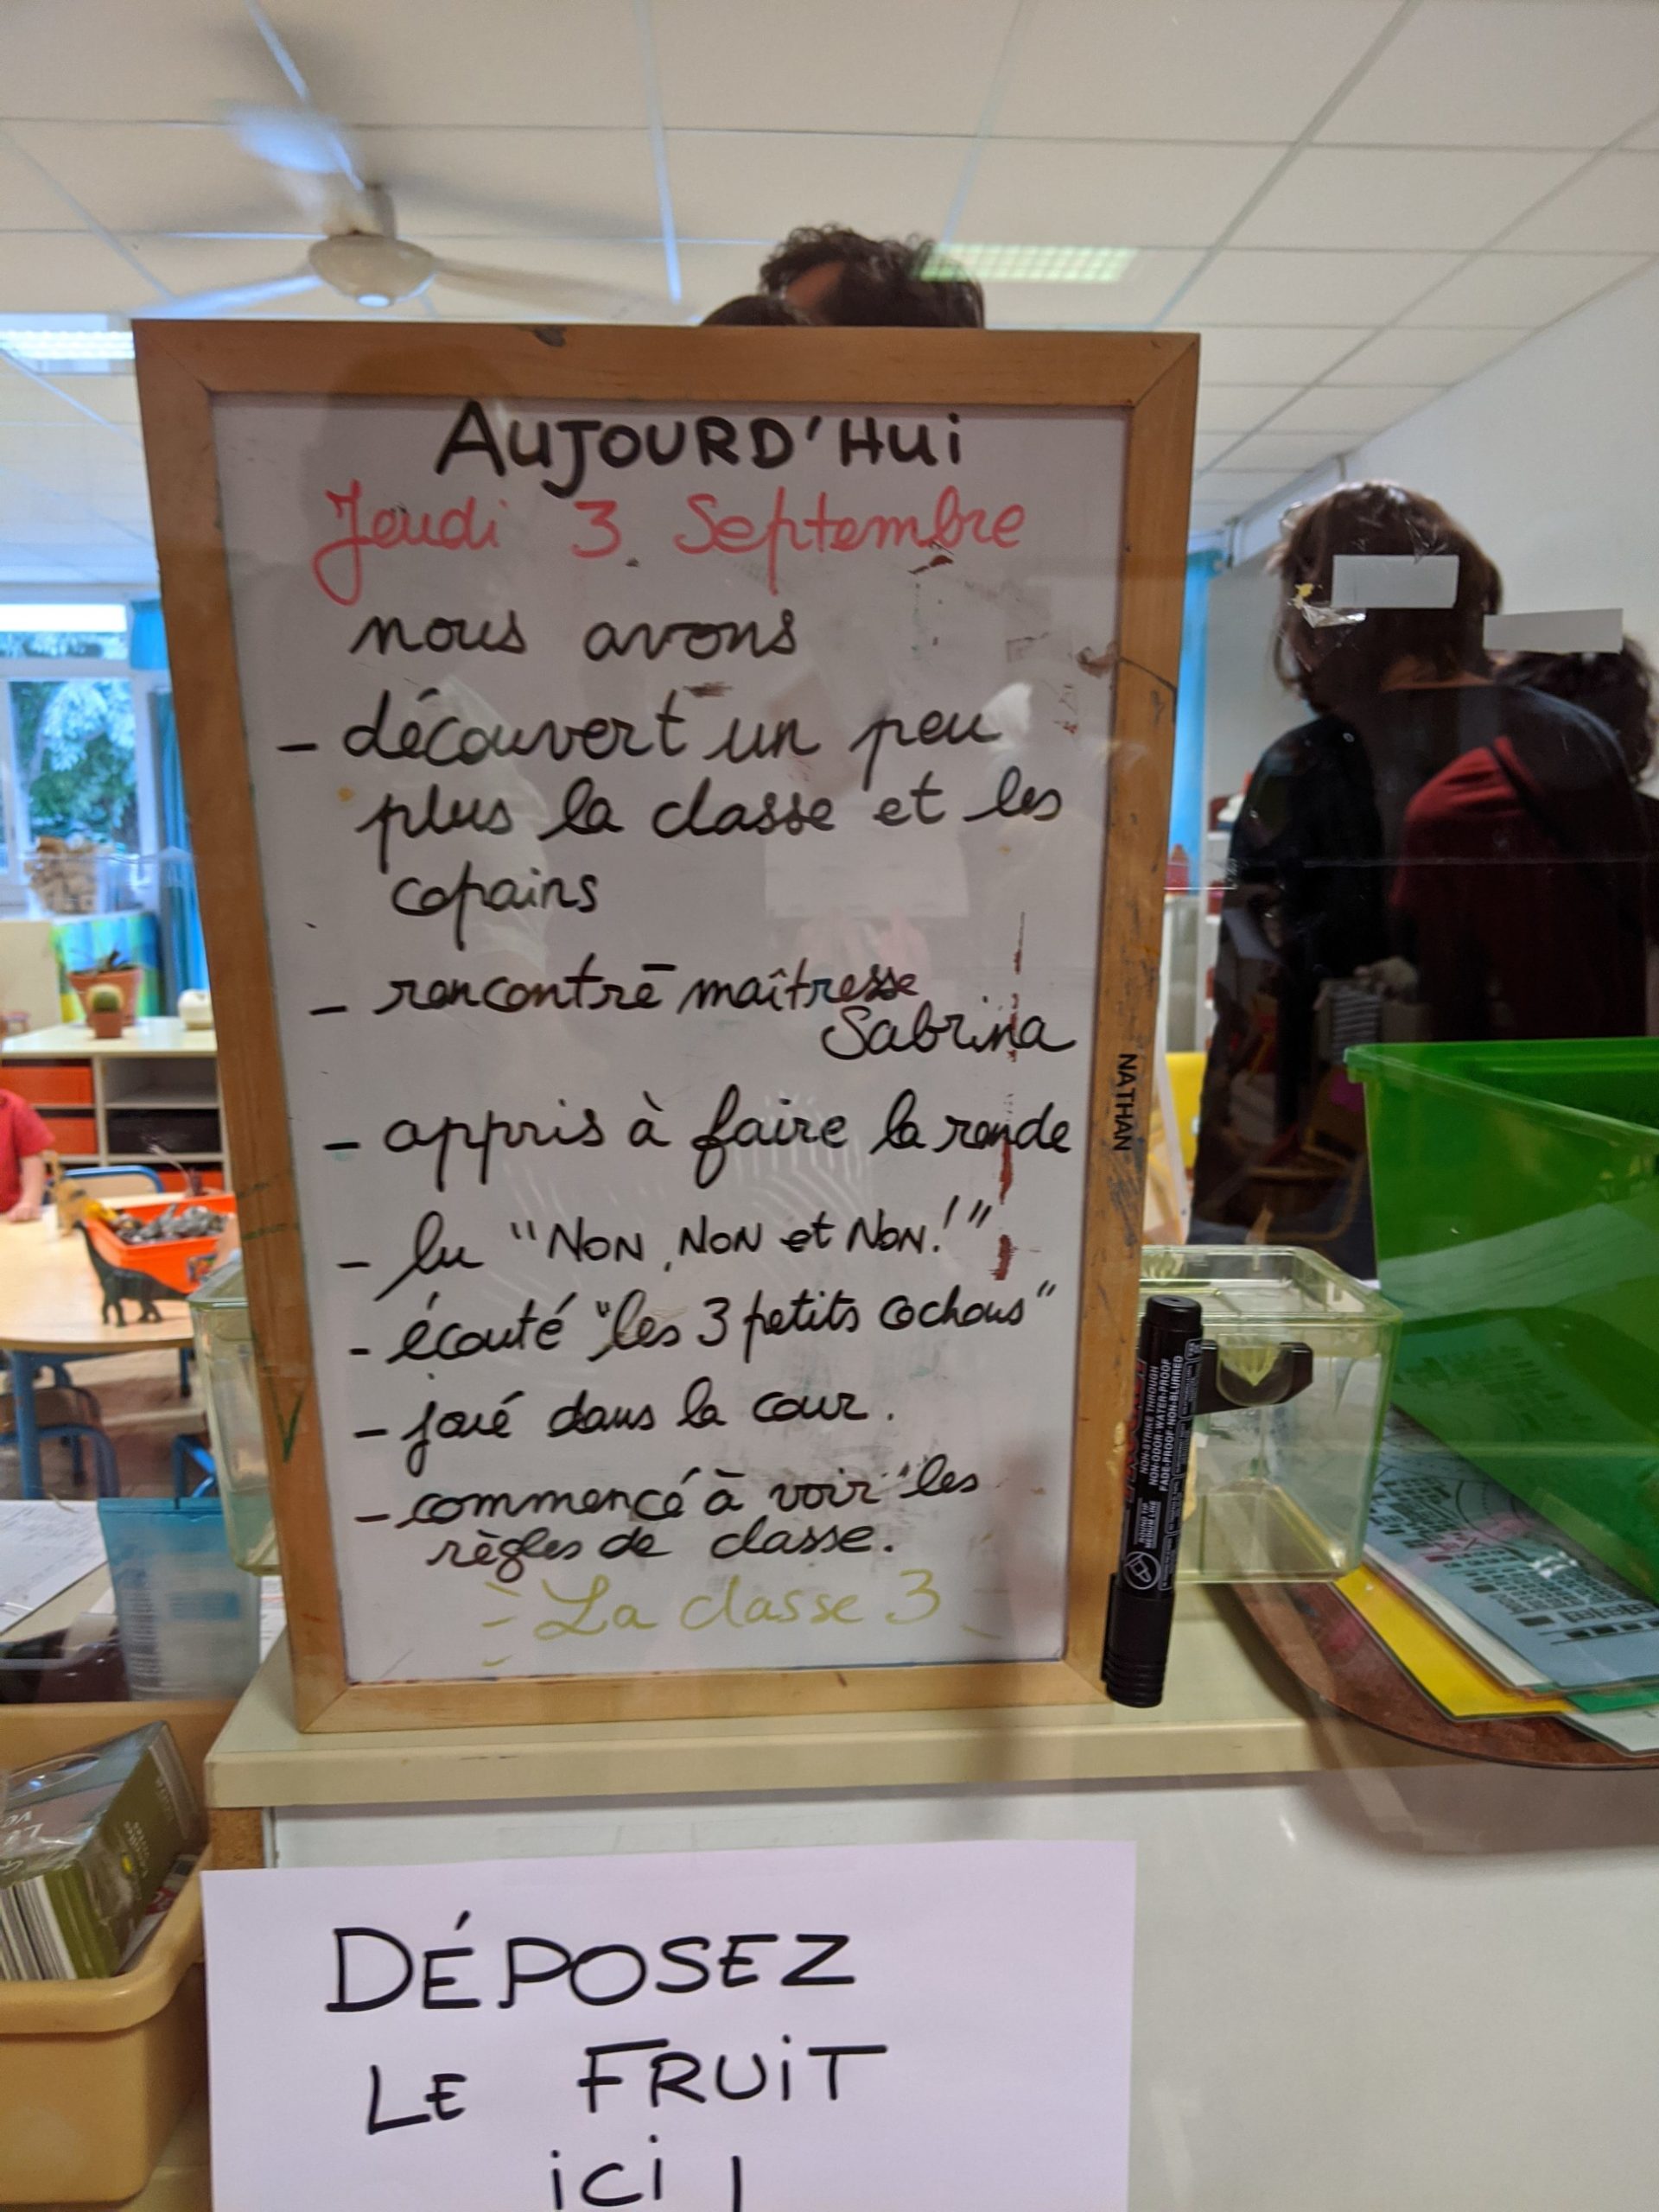 AUJOURD'HUi
Jeudi 3 Septembre
nous avons
- découvert un peu
plus la classe et les
copains
- rencontré maîtresse
Sabrina
- appris à faire la ronde
- lu "NON, NON et NON!"
- écouté "les 3 petits cochons"
- joué dans la cour.
- commencé à voir "les
règles de classe.
La classe 3
NATHAN
NON-STRIKE THROUGH
NON-ODOR·WATER-PROOF
FADE-PROOF·NON-BLURRED
DÉPOSEZ
LE FRUiT
ici !